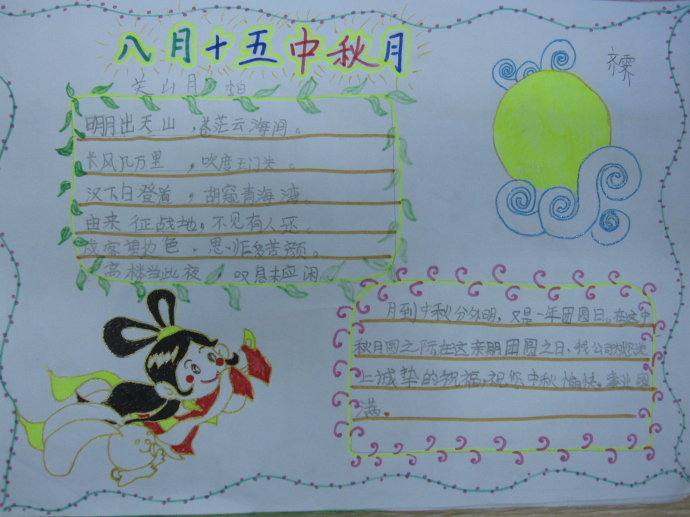 八月十五中秋月
关山月
明月出天山，苍茫云海间。
长风几万里，吹度玉门关。
汉下白登道，胡窥青海湾。
由来征战地，不见有人还。
戍客望边色，思归多苦颜。
高楼当此夜，叹息未应闲。
月到中秋分外明，又是一年团圆日。在这中
秋月圆之际在这亲朋团圆之日，我公司
上诚挚的祝福，祝您中秋愉快。事业圆
满。